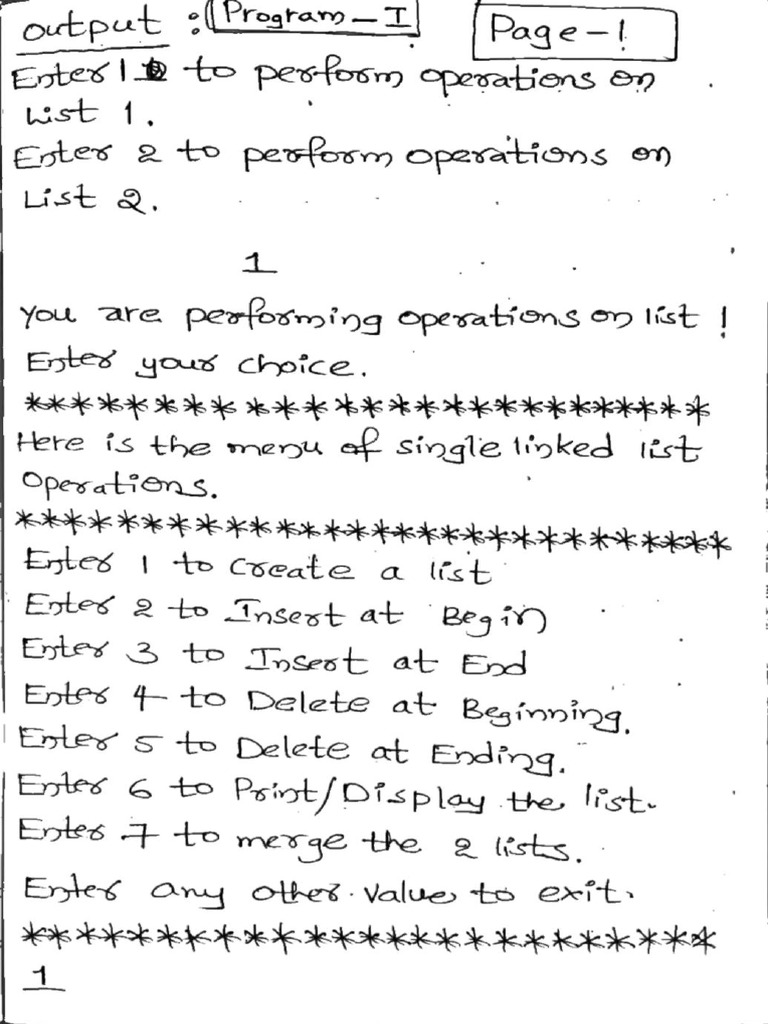 Output : Program-I Page-1
Enter 1 to perform operations on
List 1.
Enter 2 to perform operations on
List 2.
1
You are performing operations on list 1
Enter your choice.
*************************
Here is the menu of single linked list
Operations.
****************************
Enter 1 to create a list
Enter 2 to Insert at Begin
Enter 3 to Insert at End
Enter 4 to Delete at Beginning.
Enter 5 to Delete at Ending.
Enter 6 to Print/Display the list.
Enter 7 to merge the 2 lists.
Enter any other value to exit.
*************************
1